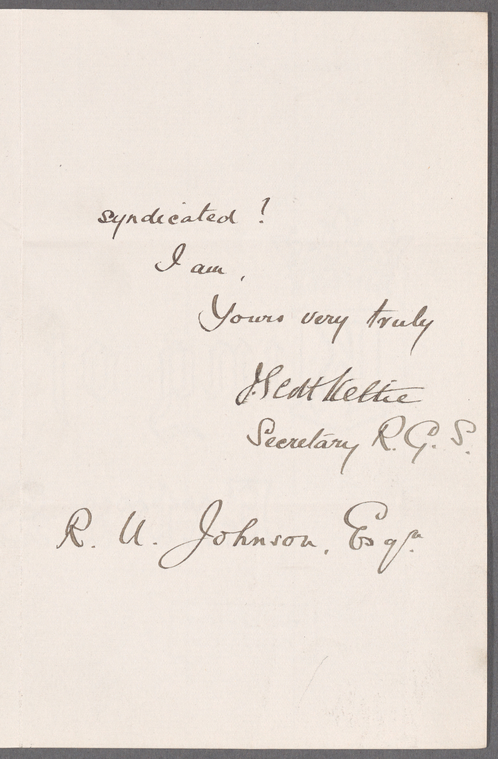 syndicated !
I am,
Yours very truly
J. Scott Keltie
Secretary R. G. S.
R. U. Johnson, Esqre.